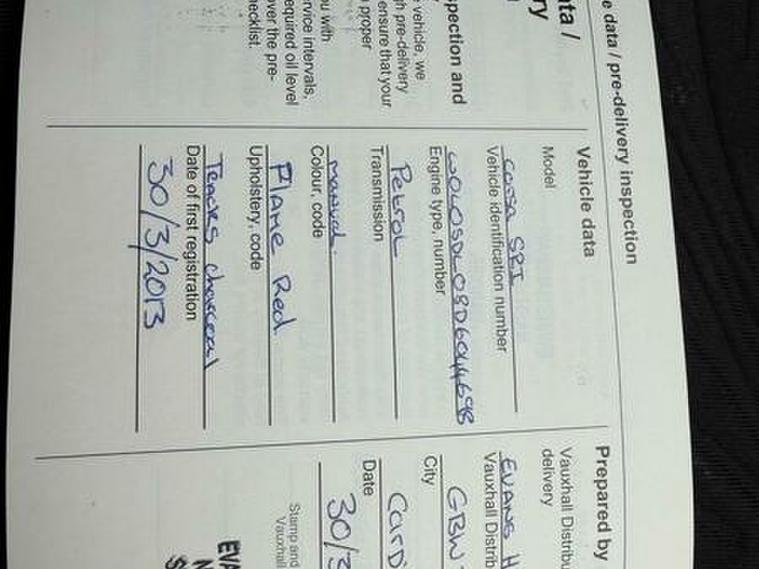 e data / pre-delivery inspection
ata /
ry
spection and
e vehicle, we
gh pre-delivery
ensure that your
n proper
ou with
rvice intervals,
equired oil level
over the pre-
ecklist.
Vehicle data
Model
Corsa SRI
Vehicle identification number
Engine type, number
Petrol
Transmission
manual.
Colour, code
Flame Red
Upholstery, code
Charcoal
Date of first registration
30/3/2013
Prepared by
Vauxhall Distribu
delivery
EVANS H
Vauxhall Distrib
GBW
City
Cardi
Date
30/3
Stamp and
Vauxhall
EVA
N
S